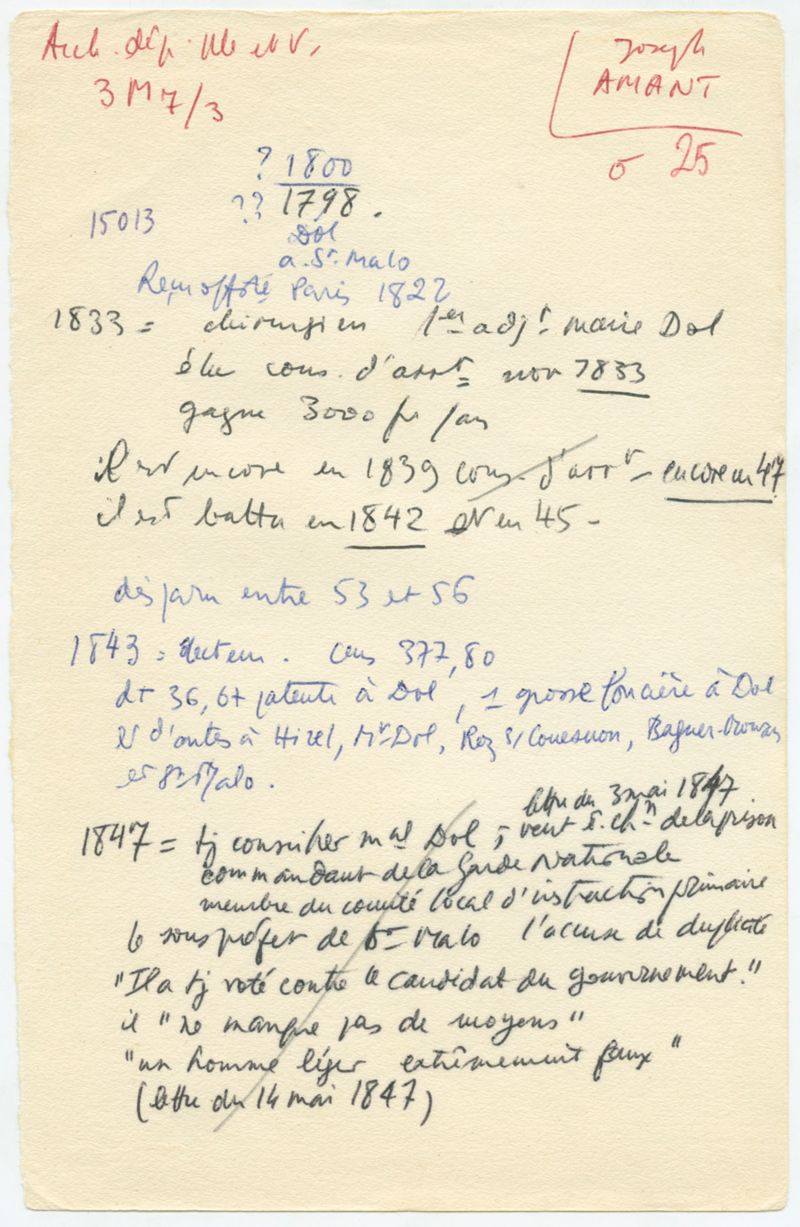 Arch. dép. Ille et V.
3 M 7/3
Joseph
AMANT
σ 25
? 1800
?? 1798.
15013
Dol
a St. Malo
Reç. off. sté Paris 1822
1833 = chirurgien 1er adjt. maire Dol
élu cons. d'arrt nov 1833
gagne 3000 fr/an
il est encore en 1839 cons. d'arrt - encore en 47
il est battu en 1842 et en 45 -
disparu entre 53 et 56
1843 = électeur. Cens 377,80
dt 36,67 patente à Dol, 1 grosse foncière à Dol
et d'autres à Hirel, Mt Dol, Roz s/ Couesnon, Baguer-Morvan
et St Malo.
lettre du 3 mai 1847
1847 = tj conseiller mal Dol, veut ê. chn de la prison
commandant de la Garde Nationale
membre du comité local d'instruction primaire
le sous préfet de St Malo l'accuse de duplicité
"Il a tj voté contre le candidat du gouvernement."
il "ne manque pas de moyens"
"un homme léger extrêmement faux"
(lettre du 14 mai 1847)